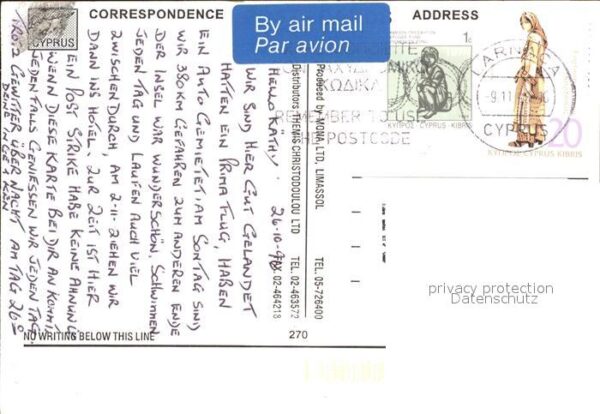 CORRESPONDENCE
ADDRESS
By air mail
Par avion
CYPRUS
26-10-
HELLO KÄTHY!
WIR SIND HIER GUT GELANDET
HATTEN EIN PRIMA FLUG, HABEN
EIN AUTO GEMIETET AM SONTAG SIND
WIR 380KM GEFAHREN ZUM ANDEREN ENDE
DER INSEL WAR WUNDERSCHÖN, SCHWIMMEN
JEDEN TAG UND LAUFEN AUCH VIEL
ZWISCHENDURCH, AM 2-11- ZIEHEN WIR
DANN INS HOTEL. ZUR ZEIT IST HIER
EIN POST STRIKE HABE KEINE AHNUNG
WENN DIESE KARTE BEI DIR AN KOMMT
JEDEN FALLS GENIESSEN WIR JEDEN TAG.
TROTZ GEWITTER ÜBER NACHT AM TAG 26°
DEINE INGE &
Produced by VOMA LTD, LIMASSOL TEL. 05-726400
Distributors THEMIS CHRISTODOULOU LTD TEL. 02-463572
02-464218
NO WRITING BELOW THIS LINE
270
1c
ΚΩΔΙΚΑ
REMEMBER TO USE
POSTCODE
ΚΥΠΡΟΣ CYPRUS KIBRIS
LARNACA
-9.11
CYPRUS
20
ΚΥΠΡΟΣ CYPRUS KIBRIS
privacy protection
Datenschutz